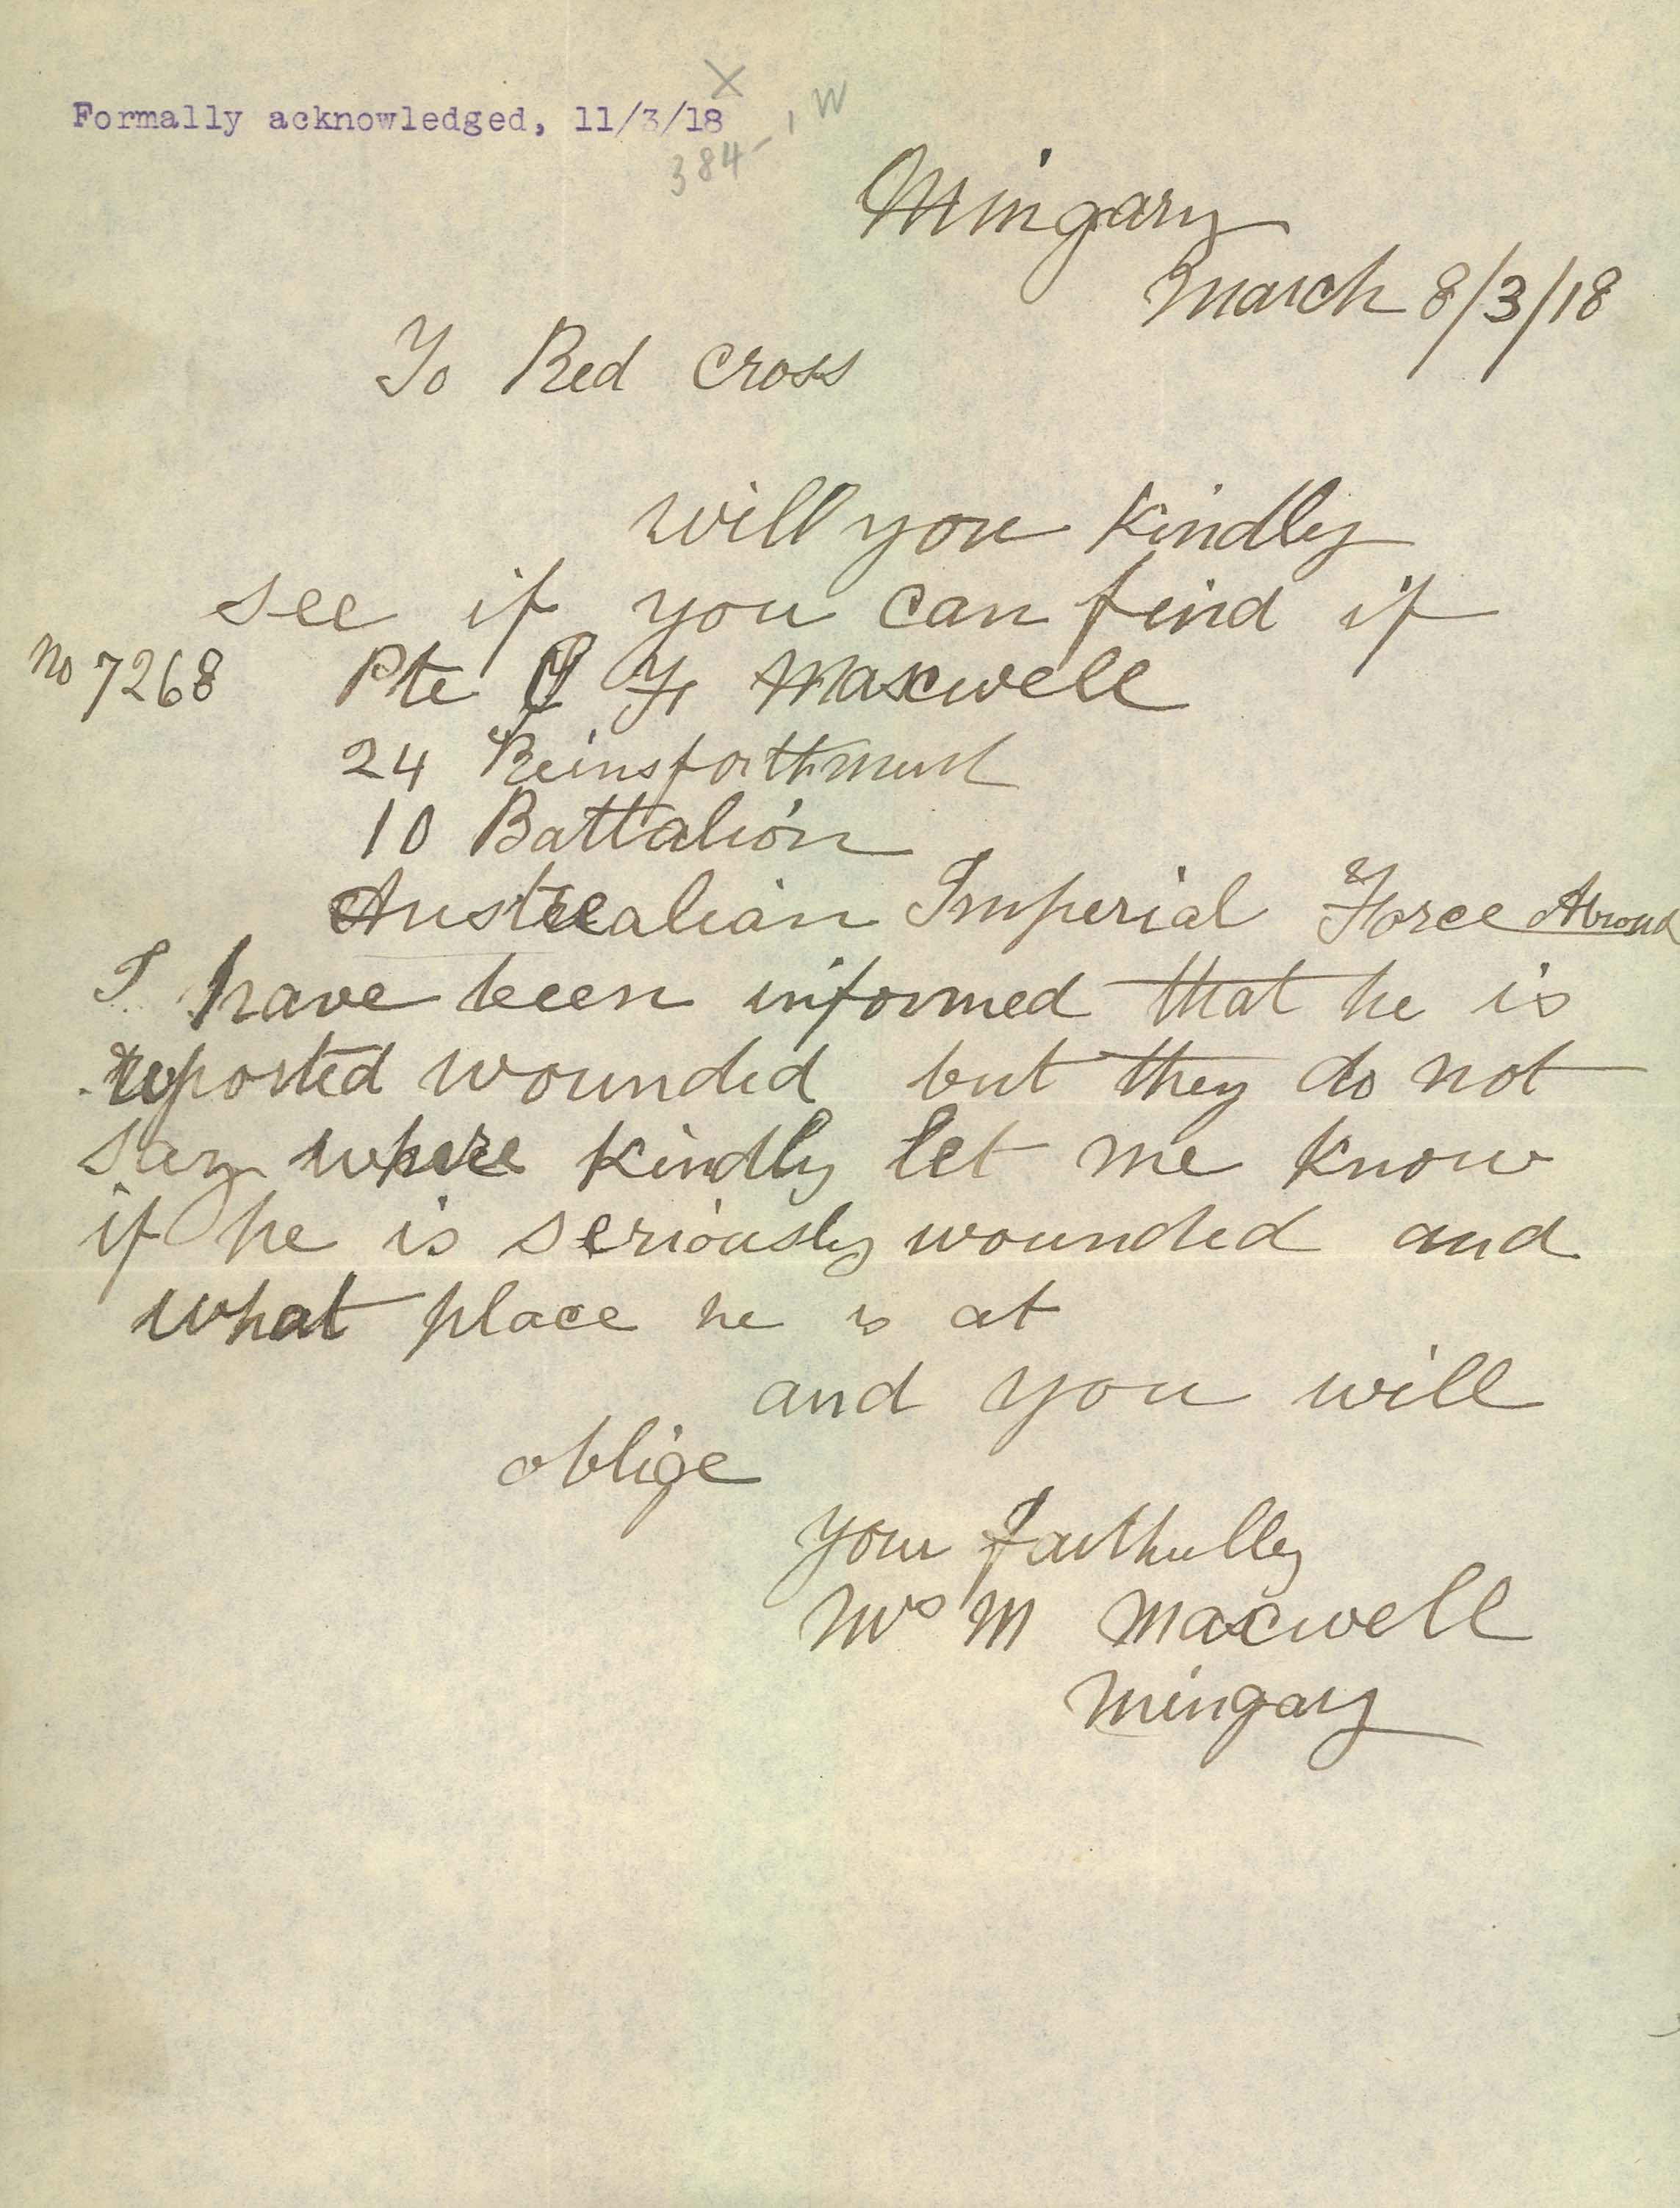 Formally acknowledged, 11/3/18
X
384 - , W
Mingary
March 8/3/18
To Red Cross
will you kindly
see if you can find if
No 7268 Pte Maxwell
24 Reinsforthment
10 Battalion
Australian Imperial Force Abroad
I have been informed that he is
reported wounded but they do not
say where kindly let me know
if he is seriously wounded and
what place he is at
and you will
oblige
your faithfully
Mrs M Maxwell
Mingary